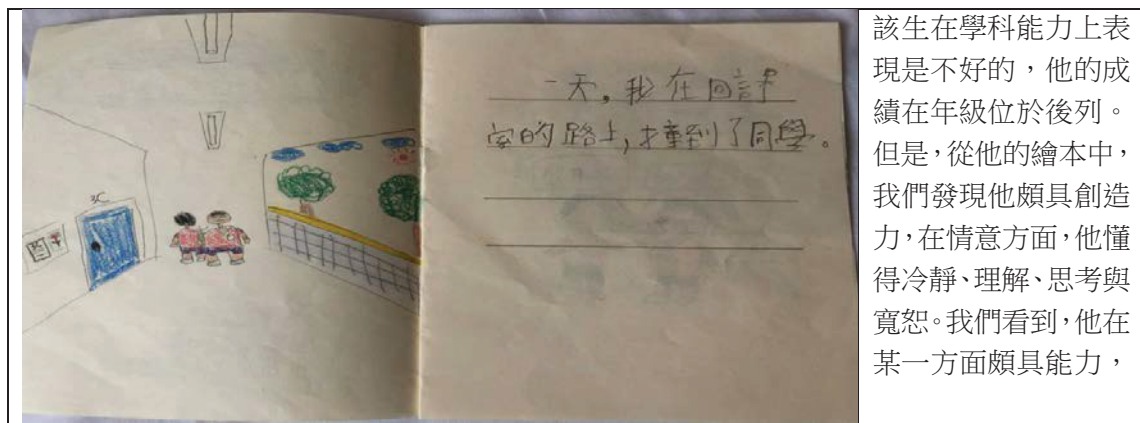 3C
一天,我在回課
室的路上,撞到了同學。
該生在學科能力上表
現是不好的,他的成
績在年級位於後列。
但是,從他的繪本中,
我們發現他頗具創造
力,在情意方面,他懂
得冷靜、理解、思考與
寬恕。我們看到,他在
某一方面頗具能力,